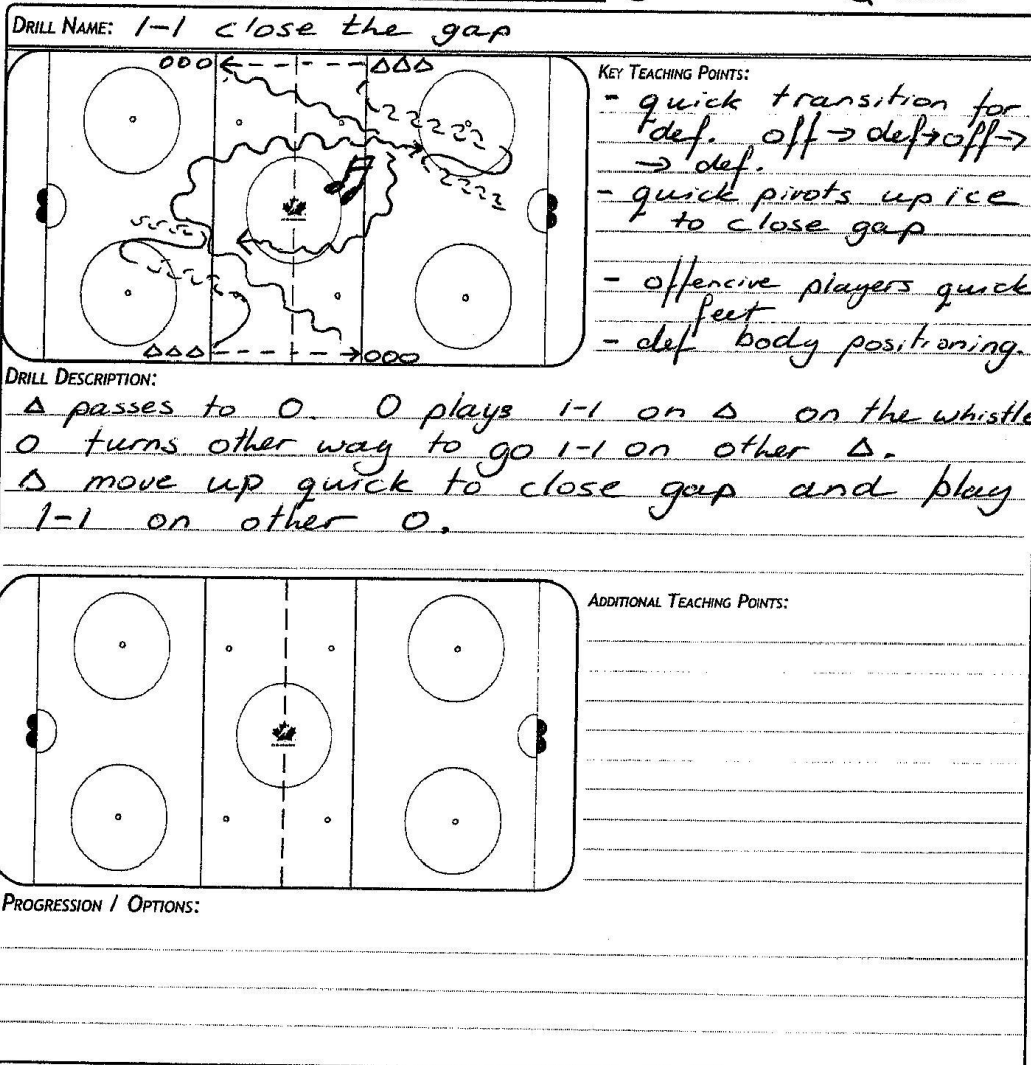 DRILL NAME: 1-1 close the gap
OOO
ΔΔΔ
ΔΔΔ
OOO
KEY TEACHING POINTS:
- quick transition for
def. off → def → off →
→ def.
- quick pivots up ice
to close gap
- offencive players quick
feet
- def body positioning.
DRILL DESCRIPTION:
Δ passes to O. O plays 1-1 on Δ on the whistle
O turns other way to go 1-1 on other Δ.
Δ move up quick to close gap and play
1-1 on other O.
ADDITIONAL TEACHING POINTS:
PROGRESSION / OPTIONS: